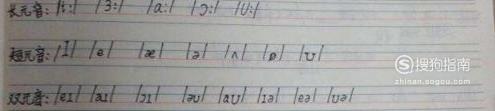 长元音: /i:/ /ɜ:/ /a:/ /ɔ:/ /U:/
短元音: /I/ /e/ /æ/ /ə/ /ʌ/ /ɒ/ /ʊ/
双元音: /eɪ/ /aɪ/ /ɔɪ/ /əʊ/ /aʊ/ /ɪə/ /eə/ /ʊə/
搜狗指南
zhinan.sogou.com